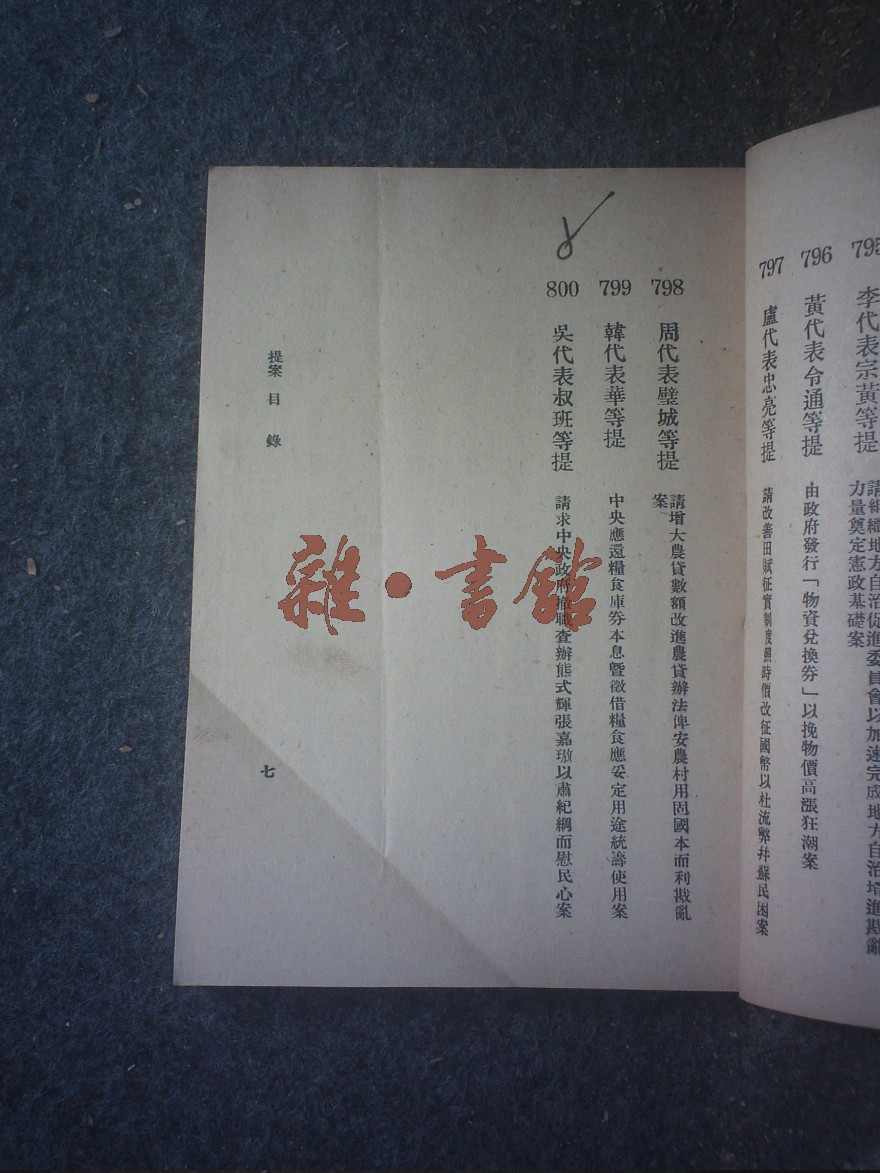 795
李代表宗黃等提
請組織地方自治促進委員會以加速完成地方自治增進戡亂
力量奠定憲政基礎案
796
黃代表令通等提
由政府發行「物資兌換券」以挽物價高漲狂潮案
797
盧代表忠亮等提
請改善田賦征實制度照時價改征國幣以杜流弊幷蘇民困案
798
周代表璧城等提
請增大農貸數額改進農貸辦法俾安農村用固國本而利戡亂
案
799
韓代表華等提
中央應還糧食庫券本息暨徵借糧食應妥定用途統籌使用案
800
吳代表叔班等提
請求中央政府撤職查辦熊式輝張嘉璈以肅紀綱而慰民心案
提案目錄
七
雜·書館